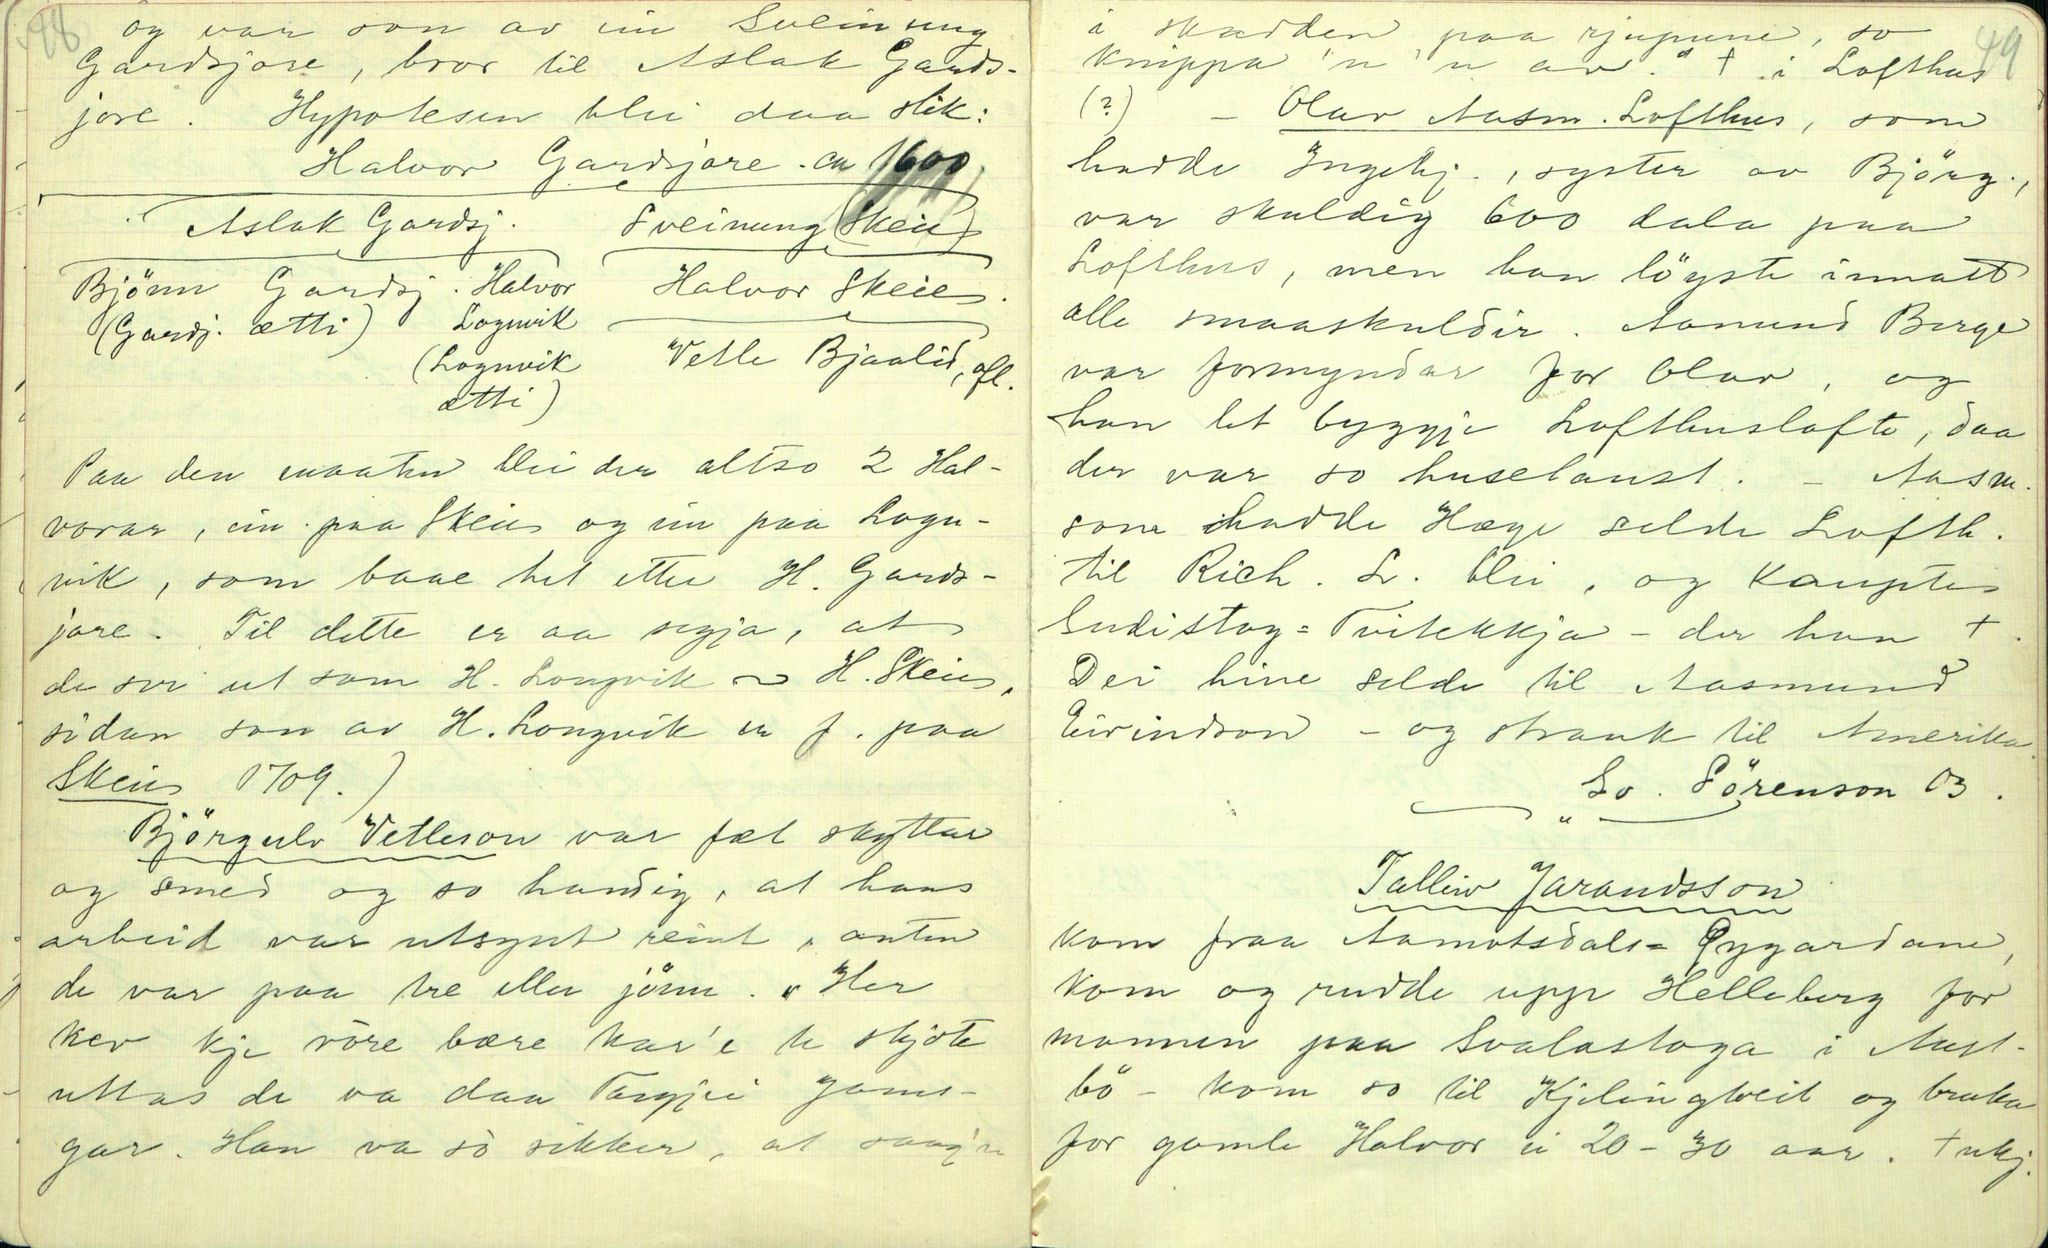 48
og var son av ein Sveinung
Gardsjore, bror til Aslak Gards-
jore. Hypotesen blir daa slik:
Halvor Gardsjore. ca 1600
Aslak Gardsj. Sveinung (Skeie)
Bjönn Gardsj. Halvor Halvor Skeie.
(Gardsj. ætti) Lognvik
(Lognvik Vetle Bjaalid, ofl.
ætti)
Paa den maaten blir der altso 2 Hal-
vorar, ein paa Skeie og ein paa Logn-
vik, som baae het etter H. Gards-
jore. Til dette er aa segja, at
de ser ut som H. Longvik ~ H. Skeie,
sidan son av H. Longvik er f. paa
Skeie 1709.)
Björgulv Vetleson var fæl skyttar
og smed og so handig, at hans
arbeid var utsynt reint, anten
de var paa tre eller jönn. "Her
kev kje vöre bære kar'e te skjote
uttas de va daa Targjei Jams-
gar. Han va sò sikker, at saag'n
49
i skadden paa rjupune, so
knippa 'n 'n av." † i Lofthus
(?) - Olav Aasm. Lofthus, som
hadde Ingebj., syster av Björg.,
var skuldig 600 dala paa
Lofthus, men han löyste innatt
alle smaaskuldir. Aamund Berge
var formyndar for Olav, og
han let byggje Lofthuslofte, daa
der var so huselaust. - Aasm.
som hadde Hæge selde Lofth.
til Rich. L. blei, og kaupte
Sudistog= Tvitekkja - der han †.
Dei hine selde til Aasmund
Eivindson - og strauk til Amerika.
" Lo. Sörenson 03.
Talleiv Jarandsson
kom fraa Aamotsdals= Öygardane,
kom og rudde upp Helleberg for
mannen paa Svalastoga i Aust-
bö - kom so til Kjelingtveit og bruka
for gamle Halvor ei 20-30 aar. † ukj.